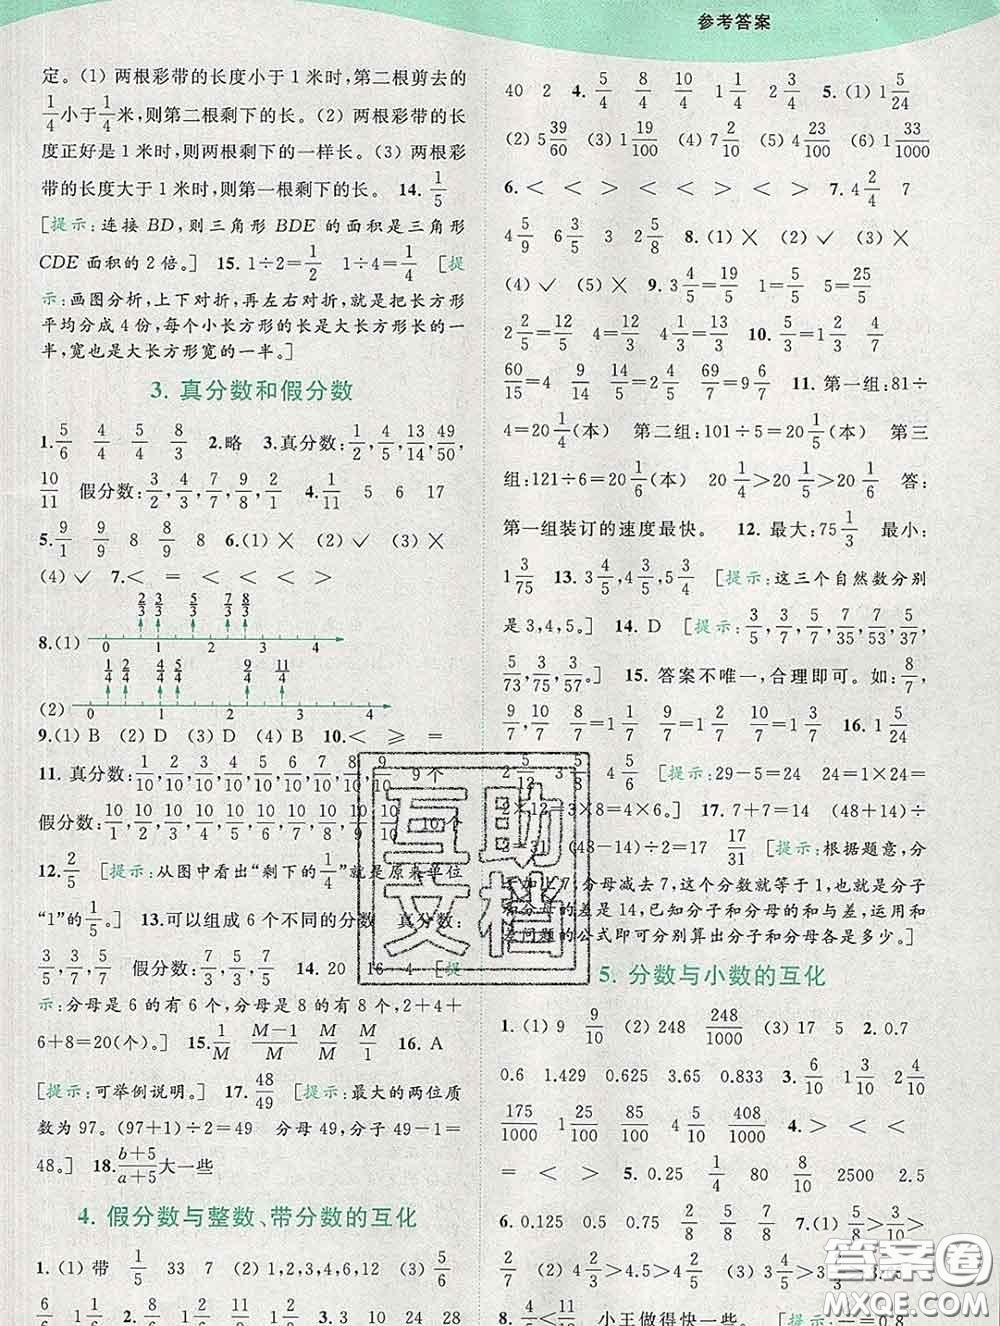 参考答案
定。(1) 两根彩带的长度小于1米时,第二根剪去的
1/4小于1/4米,则第二根剩下的长。(2) 两根彩带的长
度正好是1米时,则两根剩下的一样长。(3) 两根彩
带的长度大于1米时,则第一根剩下的长。 14. 1/5
[提示:连接BD,则三角形BDE的面积是三角形
CDE面积的2倍。] 15. 1÷2=1/2 1÷4=1/4 [提
示:画图分析,上下对折,再左右对折,就是把长方形
平均分成4份,每个小长方形的长是大长方形长的一
半,宽也是大长方形宽的一半。]
3. 真分数和假分数
1. 5/6 4/4 5/4 8/3 2.略 3.真分数:1/2,4/5,13/14,49/50,
10/11 假分数:3/2,4/3,7/5,9/8,2/1 4. 1/11 5 6 17
5. 9/1 9/9 8 8/9 8 6.(1)× (2)✓ (3)×
(4)✓ 7.< = < < < <
2/3 3/3 5/3 7/3 8/3
8.(1) 0 1 2 3 4
1/4 2/4 4/4 5/4 9/4 11/4
(2) 0 1 2 3 4
9.(1) B (2) D (3) D (4) B 10.< ≥ =
11. 真分数:1/10,2/10,3/10,4/10,5/10,6/10,7/10,8/10,9/10 9个
假分数:10/1,10/2,10/3,10/4,10/5,10/6,10/7,10/8,10/9,10/10 10个
12. 2/5 [提示:从图中看出“剩下的1/4”就是原来单位
“1”的1/5。] 13.可以组成6个不同的分数 真分数:
3/5,3/7,5/7 假分数:7/3,5/3,7/5 14. 20 16 4 [提
示:分母是6的有5个,分母是8的有7个,2+4+
6+8=20(个)。] 15. 1/M M-1/M M/M 16. A
[提示:可举例说明。] 17. 48/49 [提示:最大的两位质
数为97。(97+1)÷2=49 分母49,分子49-1=
48。] 18. b+5/a+5大一些
4. 假分数与整数、带分数的互化
1.(1)带 1/5 33 7 (2)1,2,3,4,5 (3)5/6
6/6 1/6 1 2. 8/4 6/6 1 3. 3 10 24 28
40 2 4. 5/4 8/4 4/4 1 2/4 3/4 5.(1)1 5/24
(2)5 39/60 (3)1 19/100 (4)7 2/10 (5)4 23/100 (6)1 33/1000
6.< < > < > < > 7. 4 2/4 7
4 5/9 6 3/5 3 2 5/8 8.(1)× (2)✓ (3)×
(4)✓ (5)× 9. 3 4/5=19/5 1 1/25 5=25/5
2 2/5=12/5 4=12/3 4 1/3=13/3 10. 5/3=1 2/3 4/7
60/15=4 9/14 56/14=4 69/7=9 6/7 11. 第一组:81÷
4=20 1/4(本) 第二组:101÷5=20 1/5(本) 第三
组:121÷6=20 1/6(本) 20 1/4>20 1/5>20 1/6 答:
第一组装订的速度最快。 12. 最大:75 1/3 最小:
1 3/75 13. 3 4/5,4 3/5,5 3/4 [提示:这三个自然数分别
是3,4,5。] 14. D [提示:3/5,3/7,5/7,3/57,7/35,5/37,
5/73,3/75,7/53。] 15. 答案不唯一,合理即可。如:8/7,
9/7,10/7 7/7=1 14/7=2 21/7=3 16. 1 5/24
2 5/12 3 5/8 4 5/6 [提示:29-5=24 24=1×24=
2×12=3×8=4×6。] 17. 7+7=14 (48+14)÷
2=31 (48-14)÷2=17 17/31 [提示:根据题意,分
子加上7,分母减去7,这个分数就等于1,也就是分
子和分母的差是14,已知分子和分母的和与差,运用和
差问题的公式即可分别算出分子和分母各是多少。]
5. 分数与小数的互化
1.(1) 9 9/10 (2) 248 248/1000 (3) 17 5 2. 0.7
0.6 1.429 0.625 3.65 0.833 3. 6/10 1 4/10 2 4/10
175/1000 1 25/100 85/100 4 5/10 408/100 4.> < <
= < > < 5. 0.25 1/4 80 8/10 2500 2.5
6. 0.125 0.5 2/8 5/8 7/8 7.(1)5/8>3/7>
2/7 (2)4 2/3>4.5>4 1/3
8. 4/5<11/12 小王做得快一些。
互助文档
答案圈
MXQE.COM